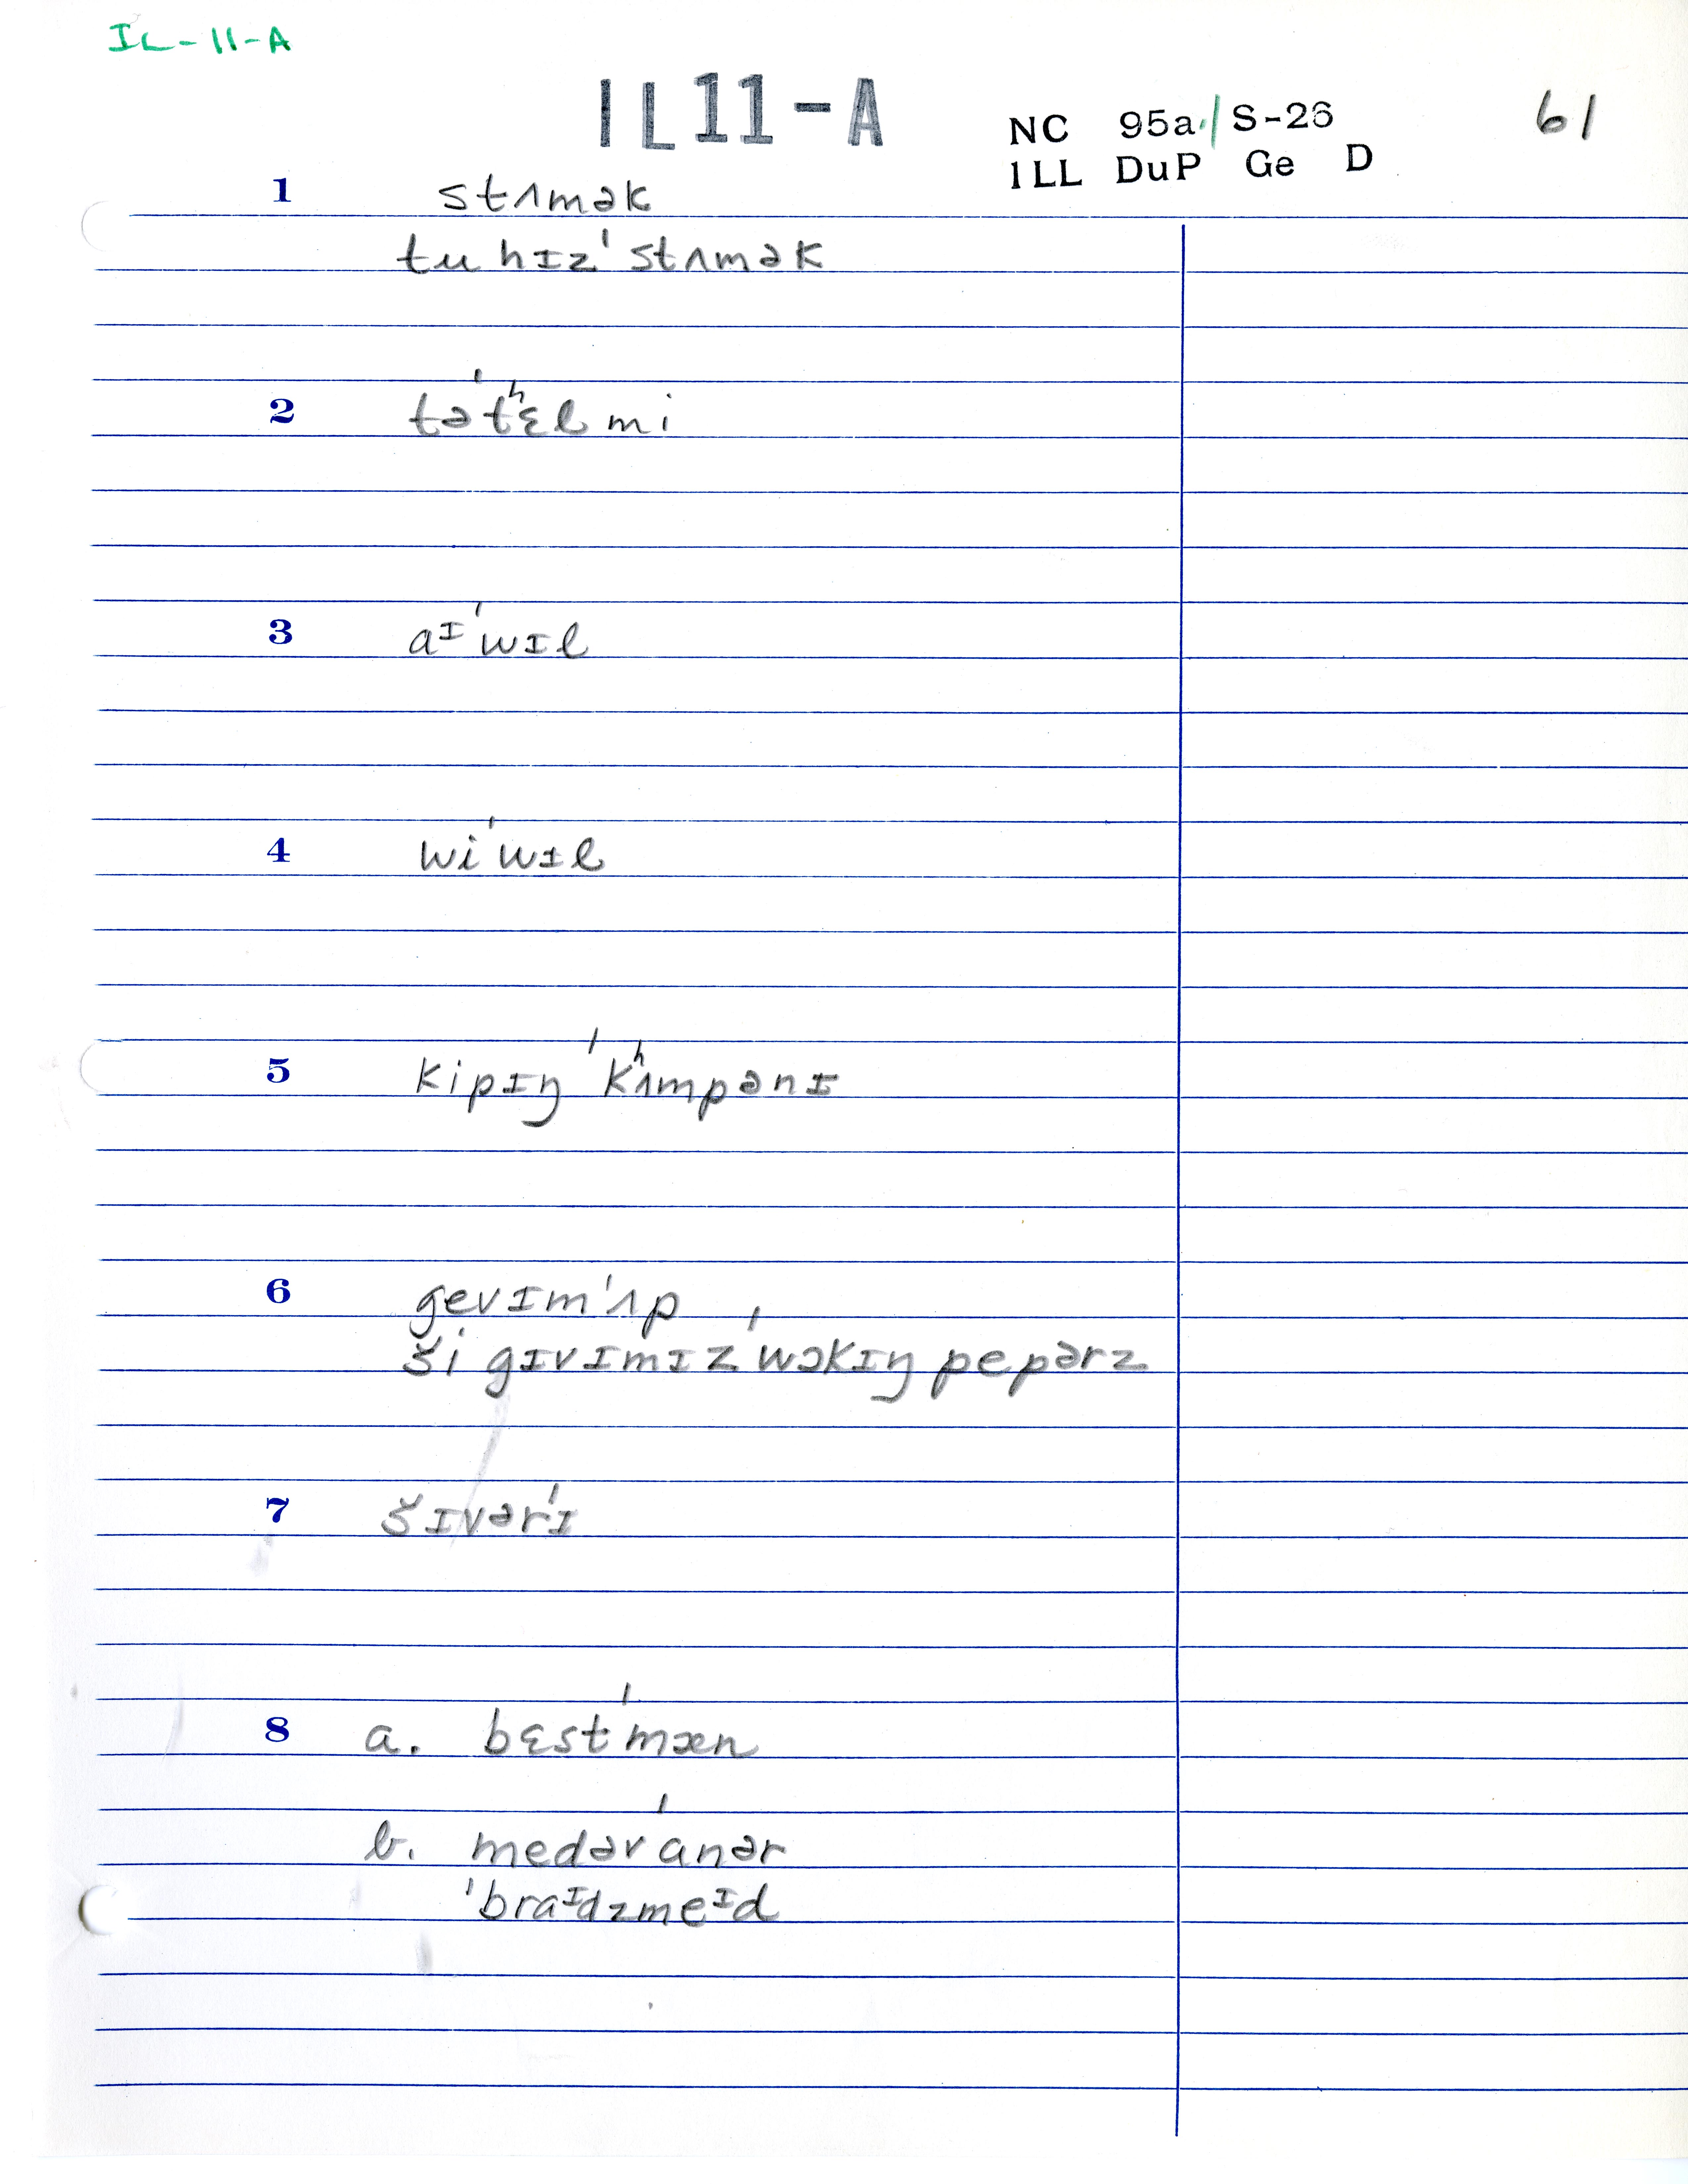 IL-11-A
IL11-A
NC 95a/S-26
61
ILL DuP Ge D
1 stʌmək
tu hɪz ˈstʌmək
2 təˈtʰɛl mi
3 aᴵ ˈwɪl
4 wi ˈwɪl
5 kipɪŋ ˈkʰʌmpənɪ
6 gevɪm ˈʌp
ši gɪvɪmɪz ˈwɔkɪŋ pepərz
7 šɪvərˈɪ
8 a. bɛst ˈmæn
b. medəv ˈanər
ˈbraᴵdzmeᴵd